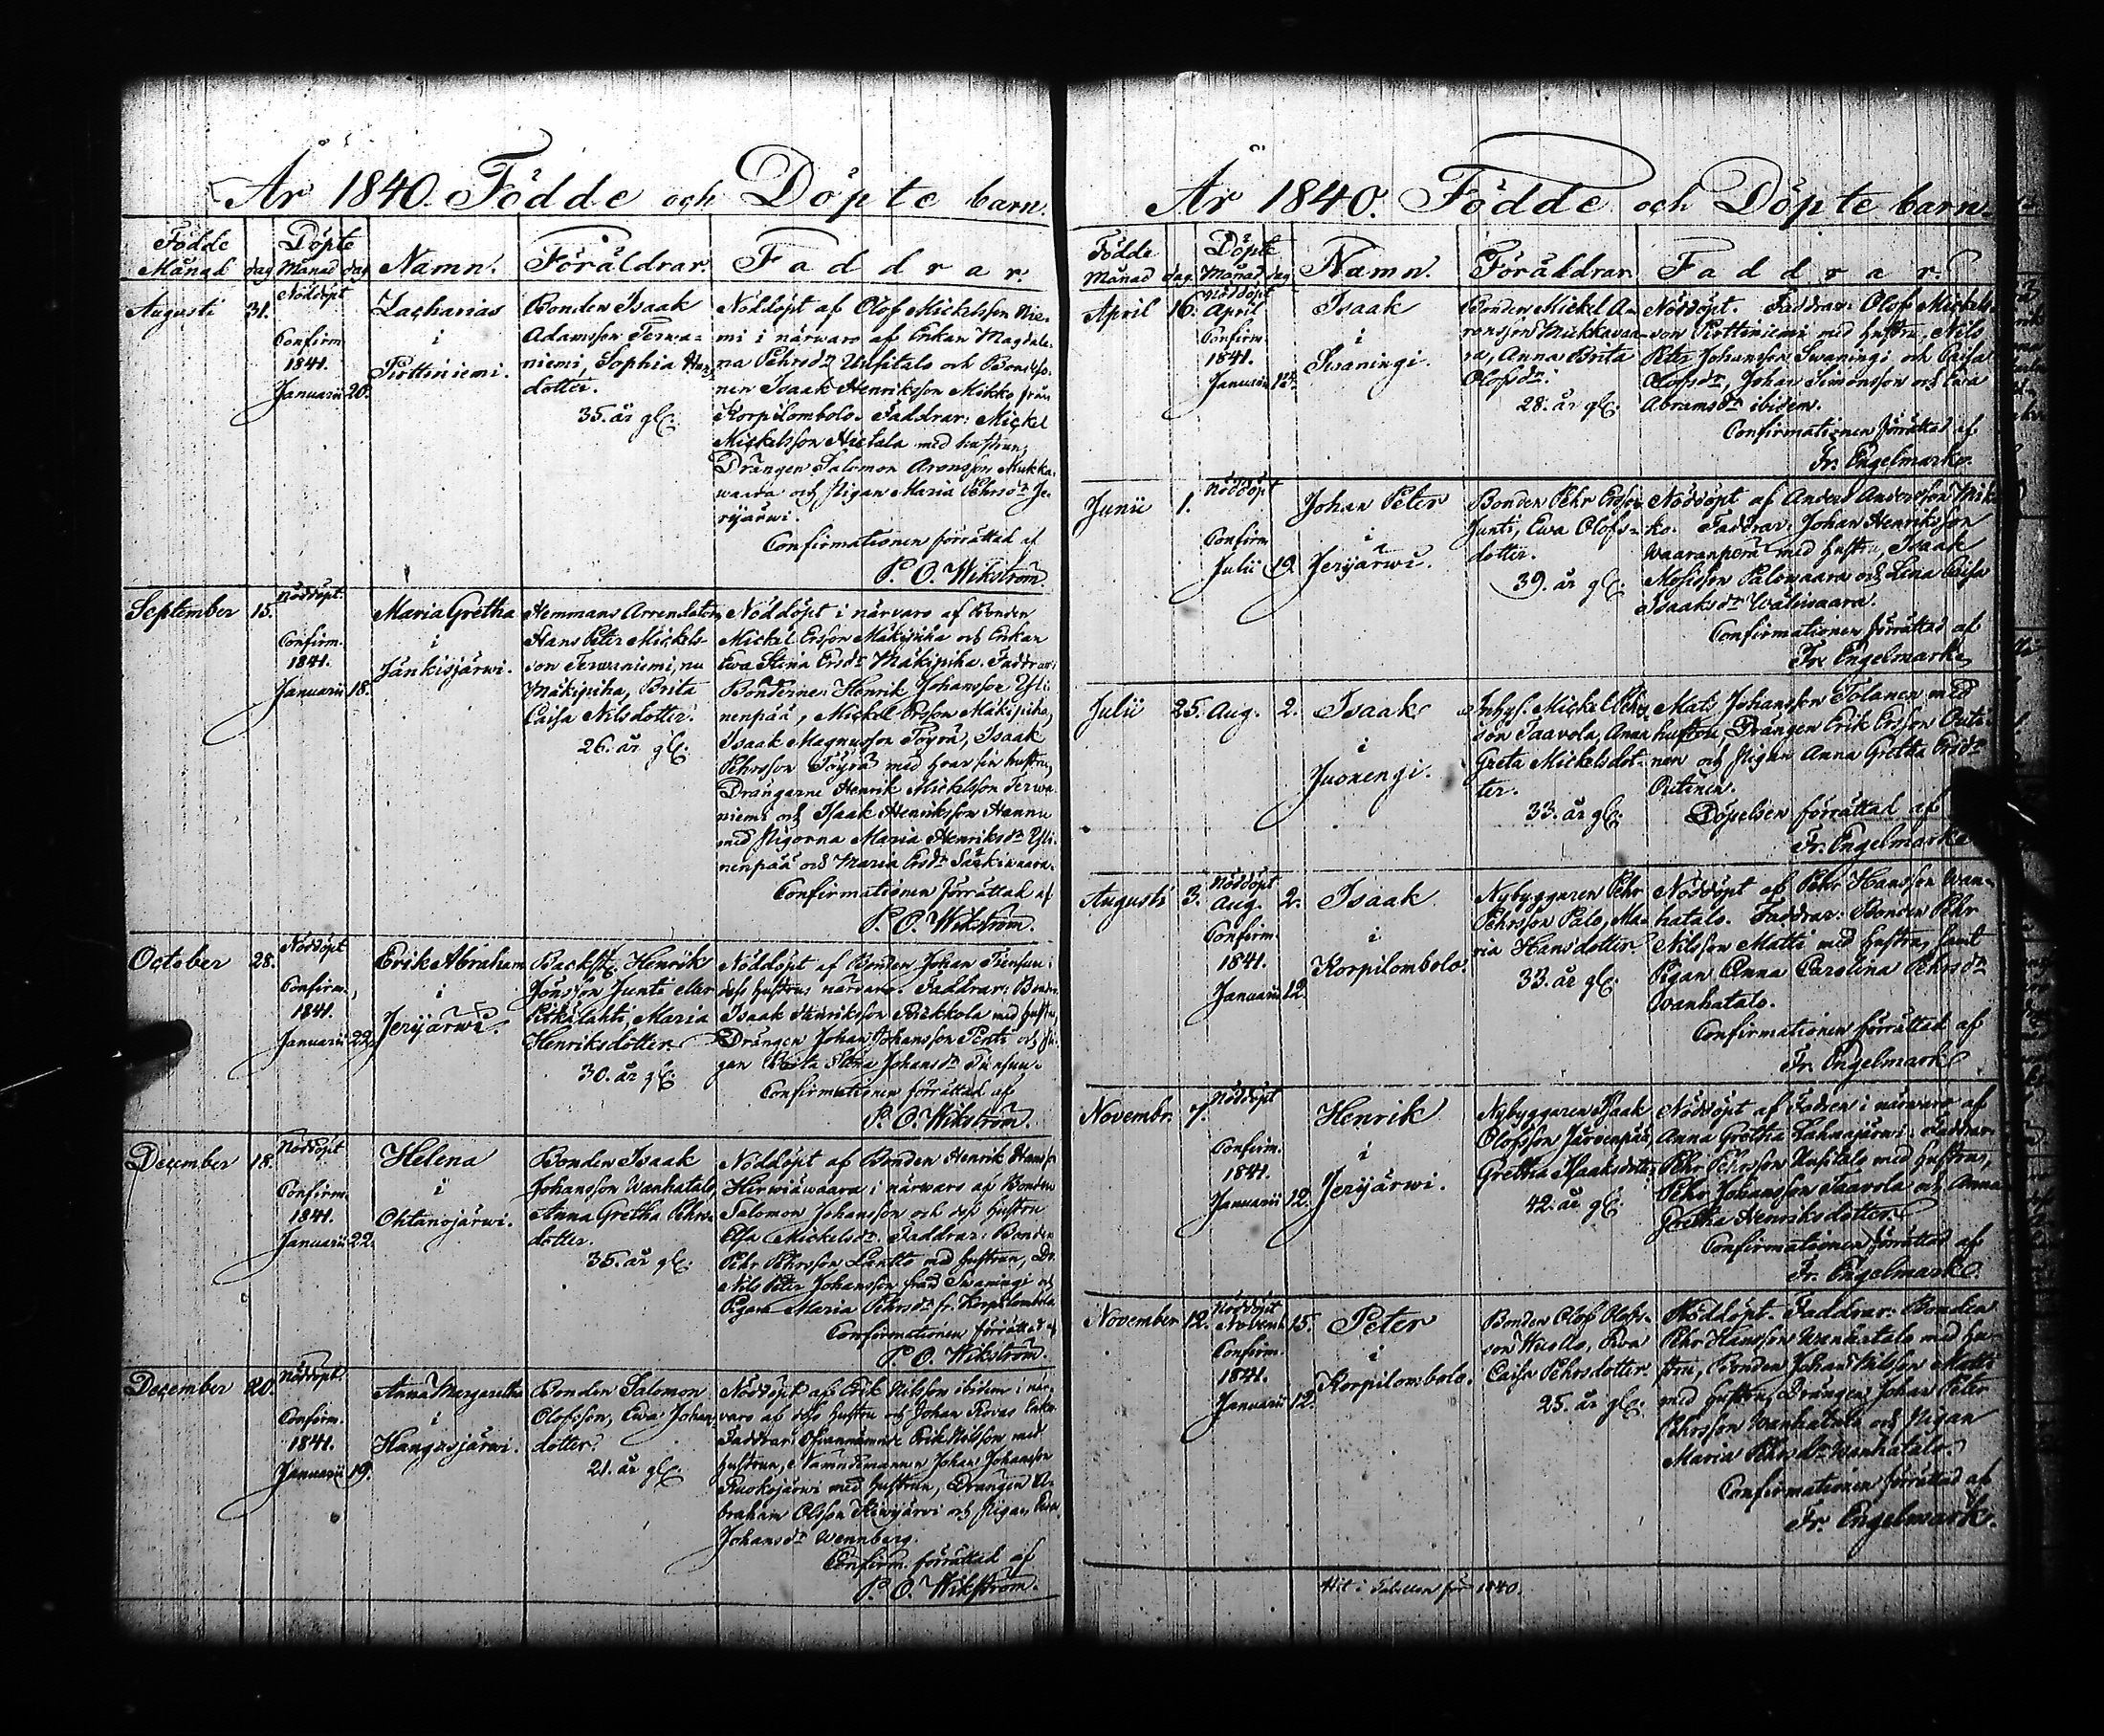 År 1840. Födde och Döpte barn.
Födde Månad dag
Döpte Månad dag
Namn.
Föräldrar.
Faddrar.
Augusti 31.
Nöddöpt
Confirm.
1841.
Januarii 20.
Zacharias
i
Pirttiniemi.
Bonden Isaak
Adamsson Terwa-
niemi, Sophia
dotter.
35. år gl.
Nöddöpt af Olof Mickelsson Nie-
mi i närvaro af Enkan Magdale-
na Pehrsdr Uusitalo och Bondeso-
nen Isaak Henriksson Mikko från
Korpilombolo. Faddrar: Mickel
Mickelsson Hietala med hustrun,
Drängen Salomon Aronsson Mukka-
waara och pigan Maria Pehrsdr Je-
rijärwi.
Confirmationen förrättad af
P. O. Wikström.
September 15.
Nöddöpt.
Confirm.
1841.
Januarii 18.
Maria Gretha
i
Jänkisjärwi.
Hemmans Arrendatorn
Hans Peter Mickels-
son Terwaniemi, nu
Mäkipiha, Brita
Caisa Nilsdotter.
26. år gl.
Nöddöpt i närvaro af Bonden
Mickel Ersson Mäkipiha och Enkan
Ewa Stina Ersdr Mäkipiha. Faddrar:
Bönderne Henrik Johansson Yli-
nenpää, Mickel Ersson Mäkipiha,
Isaak Magnusson Töyrä, Isaak
Pehrsson Töyrä med hvar sin hustru,
Drängarne Henrik Mickelsson Terwa-
niemi och Isaak Henriksson Hannu
med Pigorna Maria Henriksdr Yli-
nenpää och Maria Ersdr Särkiwaara.
Confirmationen förrättad af
P. O. Wikström.
October 28.
Nöddöpt
Confirm.
1841.
Januarii 22.
Erik Abraham
i
Jerijärwi.
Backst. Henrik
Jönsson Junti eller
Pitkälahti, Maria
Henriksdotter.
30. år gl.
Nöddöpt af Bonden Johan i
dess hustrus närvaro. Faddrar: Bonden
Isaak Henriksson Rikkola med hustru,
Drängen Johan Johansson Pertti och Pi-
gan Brita Stina Johansdr
Confirmationen förrättad af
P. O. Wikström.
December 18.
Nöddöpt
Confirm.
1841.
Januarii 22.
Helena
i
Ohtanojärwi.
Bonden Isaak
Johansson Wanhatalo,
Anna Gretha Pehrs-
dotter.
35. år gl.
Nöddöpt af Bonden Henrik Hansson
Hirwiäwaara i närvaro af Bonden
Salomon Johansson och dess hustru
Elsa Mickelsdr. Faddrar: Bonden
Pehr Pehrsson Lantto med hustrun, Dr.
Nils Peter Johansson från Swaningi och
Pigan Maria Pehrsdr fr. Korpilombolo.
Confirmationen förrättad af
P. O. Wikström.
December 20.
Nöddöpt.
Confirm.
1841.
Januarii 19.
Anna Margaretha
i
Kangasjärwi.
Bonden Salomon
Olofsson, Ewa Johans
dotter.
21. år gl.
Nöddöpt af Erik Nilsson ibidem i när-
varo af dess hustru och Johan
Faddrar: Ofvannämnde Erik Nilsson med
hustrun, Nämndemannen Johan Johansson
Ruokojärwi med hustrun, Drängen A-
braham Olsson Kiwijärwi och Pigan Ewa
Johansdr Wennberg.
Confirm. förrättad af
P. O. Wikström.
År 1840. Födde och Döpte barn.
Födde Månad dag.
Döpte Månad dag
Namn.
Föräldrar
Faddrar.
April 16.
Nöddöpt
April
Confirm.
1841.
Januarii 12.
Isaak
i
Swaningi.
Bonden Mickel A-
ronsson Mukkawaa-
ra, Anna Brita
Olofsdr.
28. år gl.
Nöddöpt. Faddrar: Olof Mickels-
son Pirttiniemi med hustru, Nils
Peter Johansson Swaningi och Caisa
Olofsdr, Johan Simonsson och Ewa
Abramsdr ibidem.
Confirmationen förrättad af
Fr. Engelmark.
Junii 1.
Nöddöpt
Confirm
Julii 19.
Johan Peter
i
Jerijärwi.
Bonden Pehr Ersson
Junti, Ewa Olofs-
dotter.
39. år gl.
Nöddöpt af Anders Andersson Mik-
ko. Faddrar: Johan Henriksson
Waaranperä med hustru, Isaak
Mosisson Palowaara och Lena Caisa
Isaaksdr Wäliwaara.
Confirmationen förrättad af
Fr. Engelmark.
Julii 25. Aug. 2.
Isaak
i
Juonengi.
Inhys. Mickel Pehrs-
son Taavola, Anna
Greta Mickelsdot-
ter.
33. år gl.
Mats Johansson Tolanen med
hustru, Drängen Erik Ersson Outi-
nen och Pigan Anna Gretha Ersdr
Outinen.
Döpelsen förrättad af
Fr. Engelmark.
Augusti 3.
Nöddöpt
Aug. 2.
Confirm.
1841.
Januarii 12.
Isaak
i
Korpilombolo.
Nybyggaren Pehr
Pehrsson Palo, Ma-
ria Hansdotter.
33. år gl.
Nöddöpt af Pehr Hansson Wan-
hatalo. Faddrar: Bonden Pehr
Nilsson Matti med hustru, samt
Pigan Anna Carolina Pehrsdr
Wanhatalo.
Confirmationen förrättad af
Fr. Engelmark.
Novembr. 7.
Nöddöpt
Confirm.
1841.
Januarii 12.
Henrik
i
Jerijärwi.
Nybyggaren Isaak
Olofsson Järvenpää,
Gretha Isaksdotter.
42. år gl.
Nöddöpt af Fadren i närvaro af
Anna Gretha Lahnajärwi. Faddrar:
Pehr Pehrsson Uusitalo med hustru,
Pehr Johansson Taavola och Anna
Gretha Henriksdotter.
Confirmationen förrättad af
Fr. Engelmark.
November 12.
Nöddöpt
Novemb. 15.
Confirm.
1841.
Januarii 12.
Peter
i
Korpilombolo.
Bonden Olof Olofs-
son Wuollo, Ewa
Caisa Pehrsdotter.
25. år gl.
Nöddöpt. Faddrar: Bonden
Pehr Hansson Wanhatalo med hu-
stru, Bonden Johan Nilsson Matti
med hustru, Drängen Johan Peter
Pehrsson Wanhatalo och Pigan
Maria Pehrsdr Wanhatalo.
Confirmationen förrättad af
Fr. Engelmark.
Hit i Tabellen för 1840.